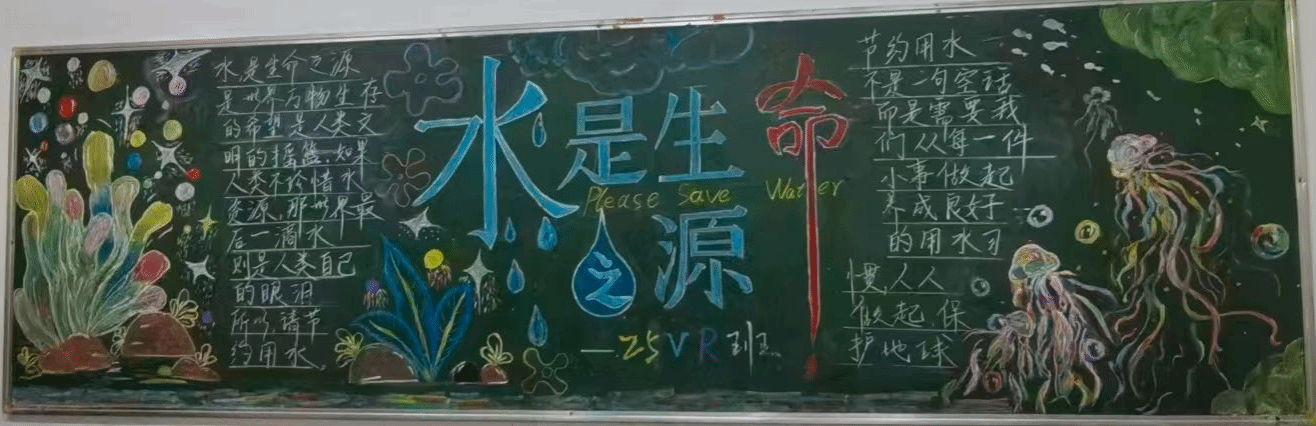 水是生命之源
是世界万物生存
的希望是人类文
明的摇篮.如果
人类不珍惜水
资源,那世界最
后一滴水
则是人类自己
的眼泪
所以请节
约用水
水是生命
Please Save Water
之源
—25VR班
节约用水
不是一句空话
而是需要我
们从每一件
小事做起
养成良好
的用水习
惯,人人
做起保
护地球